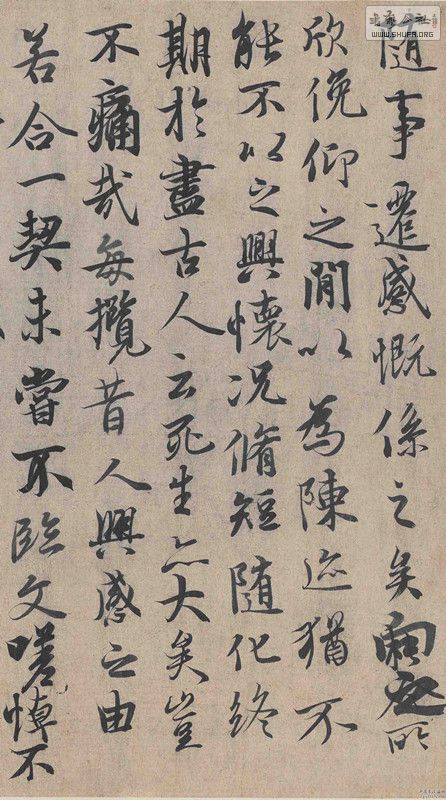 随事遷感慨係之矣向之所
欣俛仰之閒以為陳迹猶不
能不以之興懷况脩短随化終
期於盡古人云死生亦大矣豈
不痛哉每攬昔人興感之由
若合一契未嘗不臨文嗟悼不
書法公社
www.SHUFA.ORG